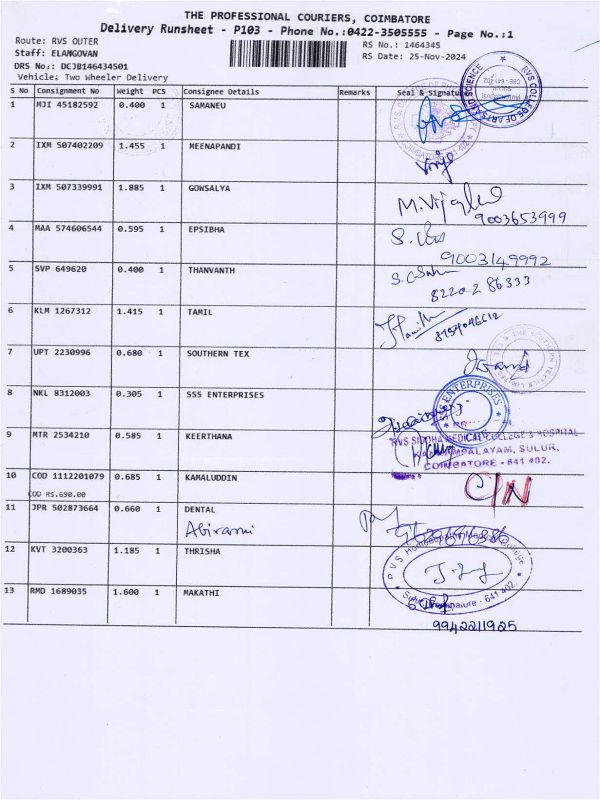 THE PROFESSIONAL COURIERS, COIMBATORE
Delivery Runsheet - P103 - Phone No.:0422-3505555 - Page No.:1
Route: RVS OUTER
RS No.: 1464345
Staff: ELANGOVAN
RS Date: 25-Nov-2024
DRS No.: DCJB146434501
Vehicle: Two Wheeler Delivery
S No Consignment No Weight PCS Consignee Details Remarks Seal & Signature
1 MJI 45182592 0.400 1 SAMANEU
RVS COLLEGE OF ARTS AND SCIENCE
2 IXM 507402209 1.455 1 MEENAPANDI
3 IXM 507339991 1.885 1 GOWSALYA
9003653999
4 MAA 574606544 0.595 1 EPSIBHA
9003149992
5 SVP 649620 0.400 1 THANVANTH
82202 86333
6 KLM 1267312 1.415 1 TAMIL
7 UPT 2230996 0.680 1 SOUTHERN TEX
8 NKL 8312003 0.305 1 SSS ENTERPRISES
ENTERPRISES
CBE
9 MTR 2534210 0.585 1 KEERTHANA
RVS SIDDHA MEDICAL COLLEGE & HOSPITAL
KANNAMPALAYAM, SULUR,
COIMBATORE - 641 402.
10 COD 1112201079 0.685 1 KAMALUDDIN
C/N
COD RS.690.00
11 JPR 502873664 0.660 1 DENTAL
Abirami
12 KVT 3200363 1.185 1 THRISHA
13 RMD 1689035 1.600 1 MAKATHI
9942211925